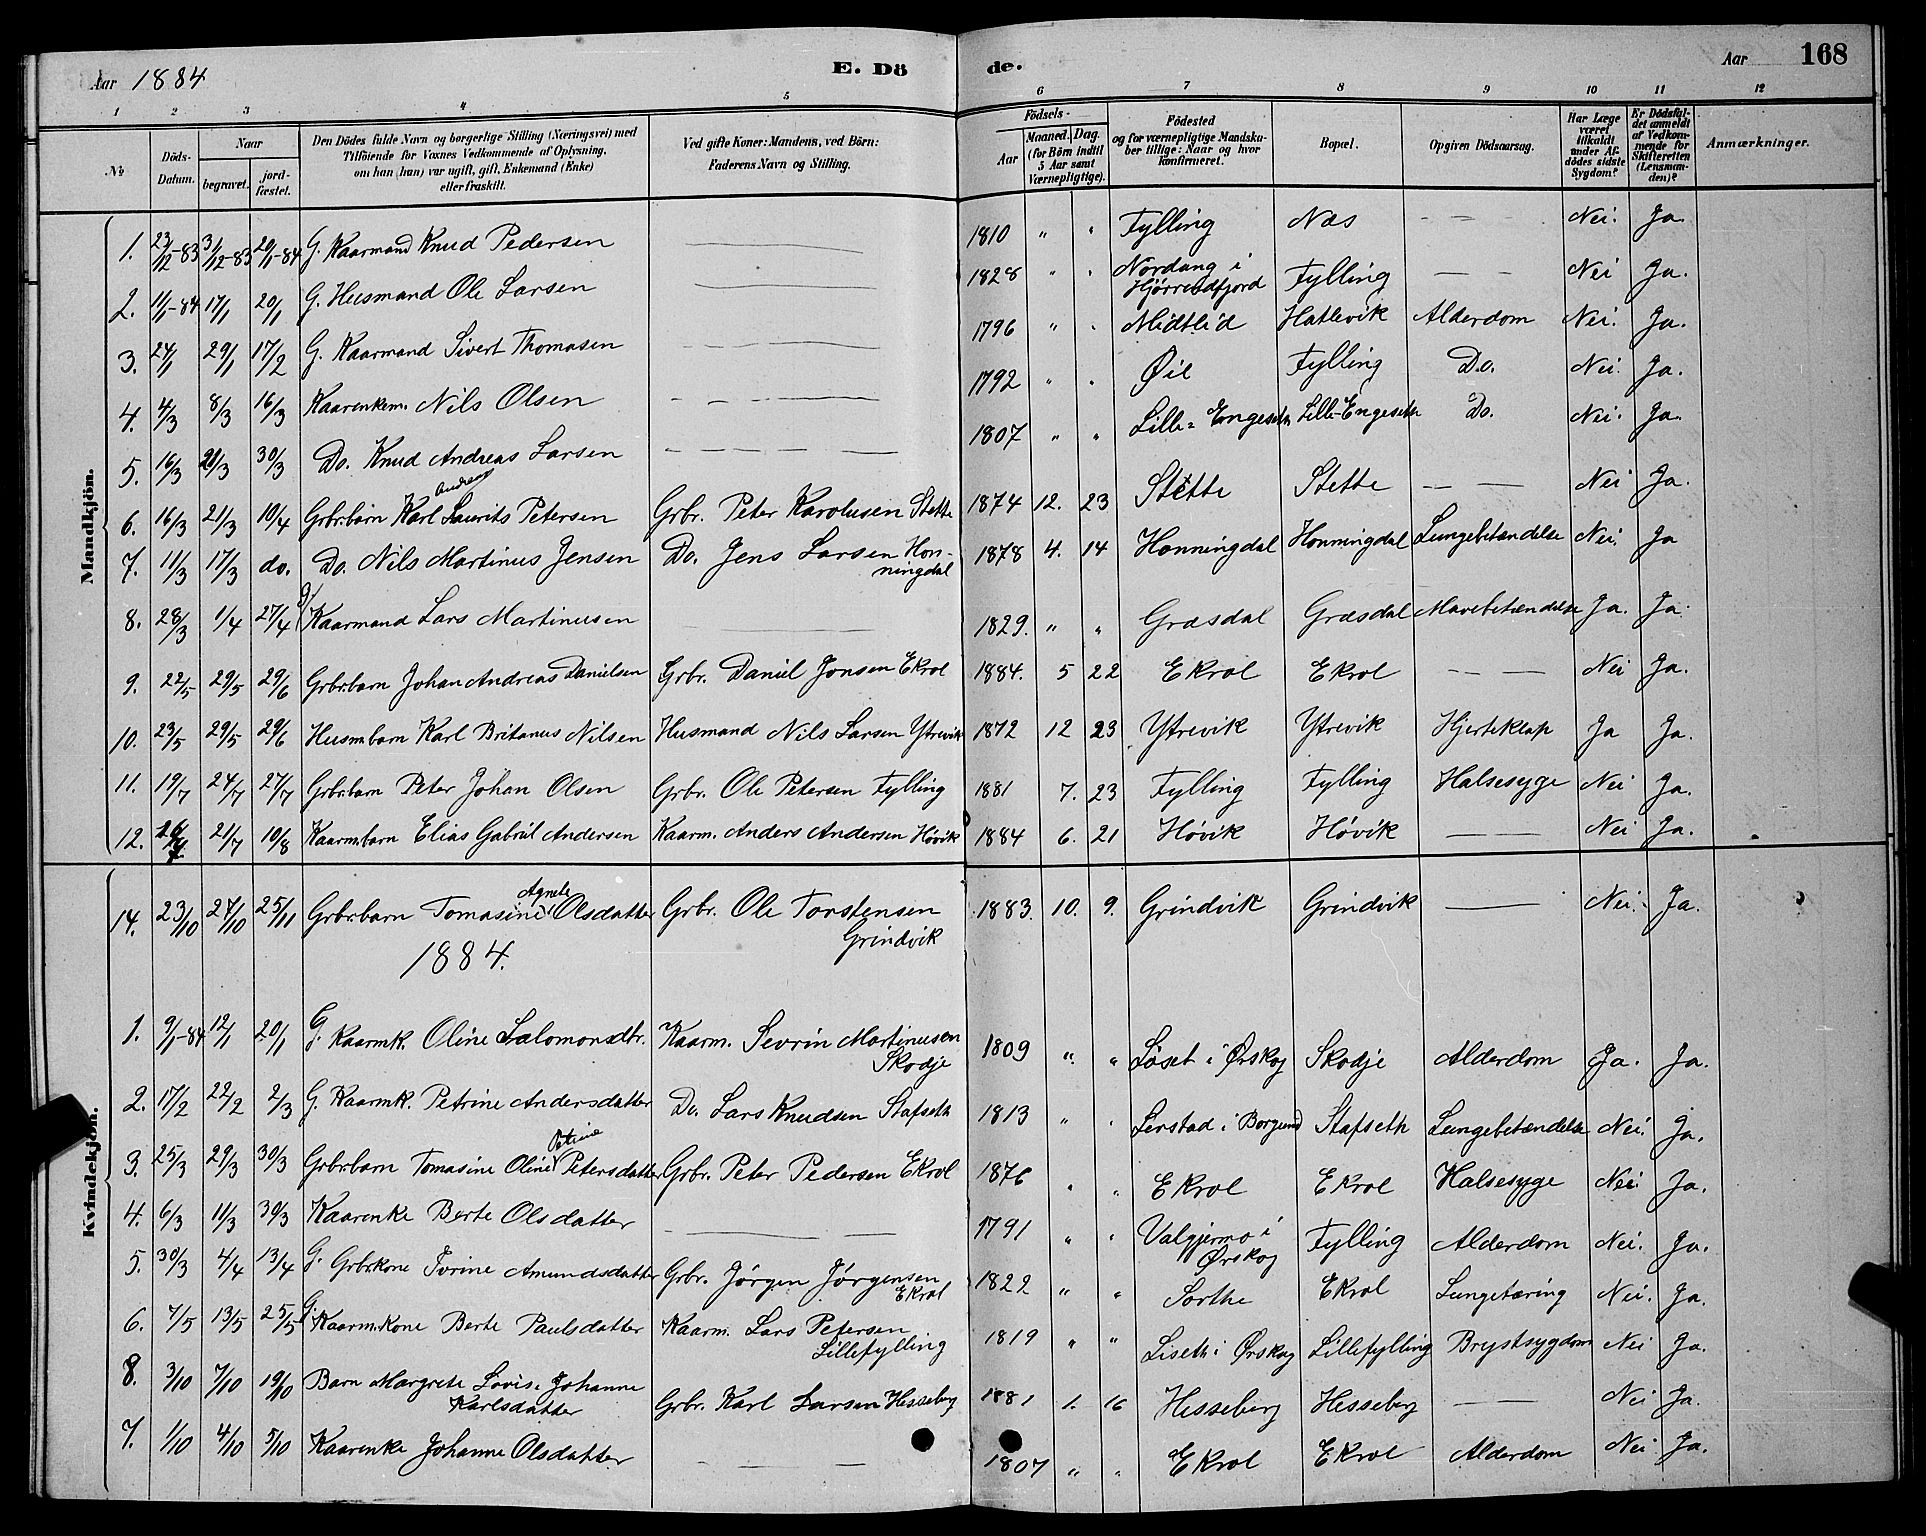 Aar 1884 E. Dö de. Aar 168
1 2 3 4 5 6 7 8 9 10 11 12
No Döds-Datum. Naar begravet. jord-fæstet. Den Dödes fulde Navn og borgerlige Stilling (Næringsvei) med Tilföiende for Voxnes Vedkommende af Oplysning, om han (hun) var ugift, gift, Enkemand (Enke) eller fraskilt. Ved gifte Koner: Mandens, ved Börn: Faderens Navn og Stilling. Födsels- Aar Maaned. Dag. (for Börn indtil 5 Aar samt Værnepligtige). Födested og for værnepligtige Mandskaber tillige: Naar og hvor konfirmeret. Bopæl. Opgiven Dödsaarsag. Har Læge været tilkaldt under Afdödes sidste Sygdom? Er Dödsfaldet anmeldt af Vedkommende for Skifteretten (Lensmanden)? Anmærkninger.
Mandkjön.
1. 23/12-83 31/12-83 20/1-84 G. Kaarmand Knud Pedersen — 1810 " " Fylling Næs — — Nei. Ja.
2. 11/1-84 17/1 20/1 G. Husmand Ole Larsen — 1828 " " Nordang i Hjörrendfjord Fylling — — Nei Ja.
3. 24/1 29/1 17/2 G. Kaarmand Sivert Thomasen — 1796 " " Midtlid Hatlevik Alderdom Nei. Ja.
4. 4/3 8/3 16/3 Kaarenkem. Nils Olsen — 1792 " " Øie Fylling Do. Nei. Ja.
5. 16/3 21/3 30/3 Do. Knud Andreas Larsen — 1807 " " Lille-Engeseth Lille-Engeseth Do. Nei. Ja.
6. 16/3 21/3 10/4 Grbr.barn Karl Andreas Laurits Petersen Grbr. Peter Karolusen Stette 1874 12. 23 Stette Stette — — Nei Ja.
7. 11/3 17/3 do. Do. Nils Martinus Jensen Do. Jens Larsen Honningdal 1878 4. 14 Honningdal Honningdal Lungebetændelse Nei. Ja
8. 28/3 1/4 27/4 G. Kaarmand Lars Martinusen — 1829. " " Græsdal Græsdal Mavebetændelse Ja. Ja.
9. 22/5 29/5 29/6 Grbr.barn Johan Andreas Danielsen Grbr. Daniel Jonsen Ekrol 1884. 5 22 Ekrol Ekrol — — Nei Ja.
10. 23/5 29/5 29/6 Husm.barn Karl Britanus Nilsen Husmand Nils Larsen Ytrevik 1872 12 23 Ytrevik Ytrevik Hjerteklap Ja Ja.
11. 19/7 24/7 27/7 Grbr.barn Peter Johan Olsen Grbr. Ole Petersen Fylling 1881 7. 23 Fylling Fylling Halsesyge Nei Ja.
12. 21/7 10/8 Kaarm.barn Elias Gabriel Andersen Kaarm. Anders Andersen Hövik 1884 6. 21 Hövik Hövik — — Nei Ja.
Kvindekjön.
14. 23/10 27/10 25/11 Grbr.barn Tomasine Agnete Olsdatter Grbr. Ole Torstensen Grindvik 1883. 10. 9. Grindvik Grindvik — Nei. Ja.
1884.
1. 9/1-84 12/1 20/1 G. Kaarmk. Oline Salomonsdtr. Kaarm. Sevrin Martinusen Skodje 1809 " " Löset i Ørskog Skodje Alderdom Ja. Ja.
2. 17/2 22/2 2/3 G. Kaarmk. Petrine Andersdatter Do. Lars Knudsen Stafseth 1813 " " Lerstad i Borgund Stafseth Lungebetændelse Nei. Ja.
3. 25/3 29/3 30/3 Grbr.barn Tomasine Oline Petrine Petersdatter Grbr. Peter Pedersen Ekrol 1876 " " Ekrol Ekrol Halsesyge Nei. Ja.
4. 6/3 11/3 30/3 Kaarenke Berte Olsdatter — 1791 " " Valgjermo i Ørskog Fylling Alderdom Nei. Ja.
5. 30/3 4/4 13/4 G. Grbr.kone Turine Amundsdatter Grbr. Jörgen Jörgensen Ekrol 1822 " " Sorthe Ekrol Lungetæring Nei. Ja.
6. 7/5 13/5 25/5 G. Kaarm.kone Berte Paulsdatter Kaarm. Lars Petersen Lillefylling 1819 " " Liseth i Ørskog Lillefylling Brystsygdom Nei Ja.
8. 3/10 7/10 19/10 Barn Margrete Lovise Johanne Karlsdatter Grbr. Karl Larsen Hesseberg 1881 1. 16 Hesseberg Hesseberg — — Nei Ja.
7. 1/10 4/10 5/10 Kaarenke Johanne Olsdatter — 1807 " " Ekrol Ekrol Alderdom Nei Ja.